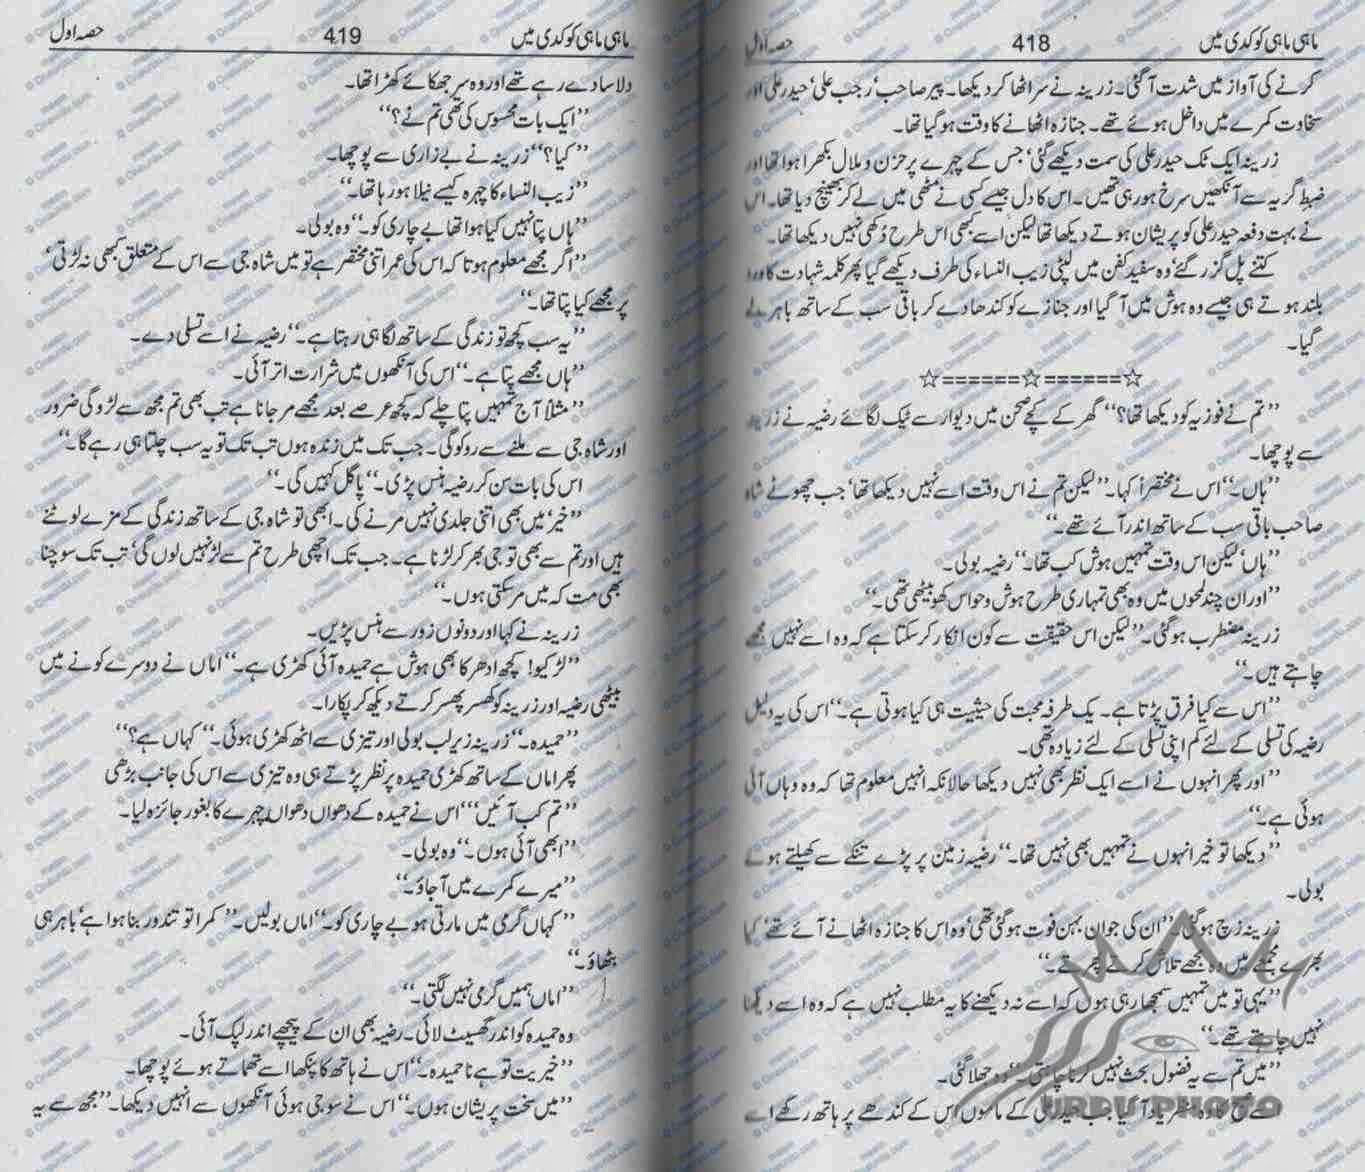 ماہی ماہی کوکدی میں 418 حصہ اول
کرنے کی آواز میں شدت آ گئی۔ زرینہ نے سر اٹھا کر دیکھا۔ پیر صاحب، رجب علی، حیدر علی اور
سخاوت کمرے میں داخل ہوئے تھے۔ جنازہ اٹھانے کا وقت ہو گیا تھا۔
زرینہ ایک ٹک حیدر علی کی سمت دیکھے گئی، جس کے چہرے پر حزن و ملال بکھرا ہوا تھا اور
ضبط گریہ سے آنکھیں سرخ ہو رہی تھیں۔ اس کا دل جیسے کسی نے مٹھی میں لے کر بھینچ دیا تھا۔ اس
نے بہت دفعہ حیدر علی کو پریشان ہوتے دیکھا تھا لیکن اسے کبھی اس طرح دُکھی نہیں دیکھا تھا۔
کتنے پل گزر گئے، وہ سفید کفن میں لپٹی زیب النساء کی طرف دیکھے گیا پھر کلمہ شہادت کا ورد
بلند ہوتے ہی جیسے وہ ہوش میں آ گیا اور جنازے کو کندھا دے کر باقی سب کے ساتھ باہر لے
گیا۔
☆======☆======☆
”تم نے فوزیہ کو دیکھا تھا؟“ گھر کے کچے صحن میں دیوار سے ٹیک لگائے رضیہ نے زرینہ
سے پوچھا۔
”ہاں۔“ اس نے مختصراً کہا۔ ”لیکن تم نے اس وقت اسے نہیں دیکھا تھا، جب چھوٹے شاہ
صاحب باقی سب کے ساتھ اندر آئے تھے۔“
”ہاں، لیکن اس وقت تمہیں ہوش کب تھا۔“ رضیہ بولی۔
”اور ان چند لمحوں میں وہ بھی تمہاری طرح ہوش و حواس کھو بیٹھی تھی۔“
زرینہ مضطرب ہو گئی۔ ”لیکن اس حقیقت سے کون انکار کر سکتا ہے کہ وہ اسے نہیں مجھے
چاہتے ہیں۔“
”اس سے کیا فرق پڑتا ہے۔ یک طرفہ محبت کی حیثیت ہی کیا ہوتی ہے۔“ اس کی یہ دلیل
رضیہ کی تسلی کے لئے کم اپنی تسلی کے لئے زیادہ تھی۔
”اور پھر انہوں نے اسے ایک نظر بھی نہیں دیکھا حالانکہ انہیں معلوم تھا کہ وہ وہاں آئی
ہوئی ہے۔“
”دیکھا تو خیر انہوں نے تمہیں بھی نہیں تھا۔“ رضیہ زمین پر پڑے تنکے سے کھیلتے ہوئے
بولی۔
زرینہ زچ ہو گئی۔ ”ان کی جوان بہن فوت ہو گئی تھی، وہ اس کا جنازہ اٹھانے آئے تھے، کیا
بھرے مجمعے میں وہ مجھے تلاش کرتے پھرتے۔“
”یہی تو میں تمہیں سمجھا رہی ہوں کہ اسے نہ دیکھنے کا یہ مطلب نہیں ہے کہ وہ اسے دیکھنا
نہیں چاہتے تھے۔“
”میں تم سے یہ فضول بحث نہیں کرنا چاہتی۔“ وہ جھلا گئی۔
اسے وہ یاد آ گیا جب حیدر علی کے ماموں اس کے کندھے پر ہاتھ رکھے اسے
URDU PHOTO
ماہی ماہی کوکدی میں 419 حصہ اول
دلاسا دے رہے تھے اور وہ سر جھکائے کھڑا تھا۔
”ایک بات محسوس کی تھی تم نے؟“
”کیا؟“ زرینہ نے بے زاری سے پوچھا۔
”زیب النساء کا چہرہ کیسے نیلا ہو رہا تھا۔“
”ہاں پتا نہیں کیا ہوا تھا بے چاری کو۔“ وہ بولی۔
”اگر مجھے معلوم ہوتا کہ اس کی عمر اتنی مختصر ہے تو میں شاہ جی سے اس کے متعلق کبھی نہ لڑتی،
پر مجھے کیا پتا تھا۔“
”یہ سب کچھ تو زندگی کے ساتھ لگا ہی رہتا ہے۔“ رضیہ نے اسے تسلی دے۔
”ہاں مجھے پتا ہے۔“ اس کی آنکھوں میں شرارت اتر آئی۔
”مثلاً آج تمہیں پتا چلے کہ کچھ عرصے بعد مجھے مر جانا ہے تب بھی تم مجھ سے لڑو گی ضرور
اور شاہ جی سے ملنے سے روکو گی۔ جب تک میں زندہ ہوں تب تک تو یہ سب چلتا ہی رہے گا۔“
اس کی بات سن کر رضیہ ہنس پڑی۔ ”پاگل کہیں کی۔“
”خیر، میں بھی اتنی جلدی نہیں مرنے کی۔ ابھی تو شاہ جی کے ساتھ زندگی کے مزے لوٹنے
ہیں اور تم سے بھی تو جی بھر کر لڑنا ہے۔ جب تک اچھی طرح تم سے لڑ نہیں لوں گی، تب تک سوچنا
بھی مت کہ میں مر سکتی ہوں۔“
زرینہ نے کہا اور دونوں زور سے ہنس پڑیں۔
”لڑکیو! کچھ ادھر کا بھی ہوش ہے حمیدہ آئی کھڑی ہے۔“ اماں نے دوسرے کونے میں
بیٹھی رضیہ اور زرینہ کو کھسر پھسر کرتے دیکھ کر پکارا۔
”حمیدہ۔“ زرینہ زیر لب بولی اور تیزی سے اٹھ کھڑی ہوئی۔ ”کہاں ہے؟“
پھر اماں کے ساتھ کھڑی حمیدہ پر نظر پڑتے ہی وہ تیزی سے اس کی جانب بڑھی
”تم کب آئیں“ اس نے حمیدہ کے دھواں دھواں چہرے کا بغور جائزہ لیا۔
”ابھی آئی ہوں۔“ وہ بولی۔
”میرے کمرے میں آ جاؤ۔“
”کہاں گرمی میں مارتی ہو بے چاری کو۔“ اماں بولیں۔ ”کمرا تو تندور بنا ہوا ہے، باہر ہی
بٹھاؤ۔“
”اماں ہمیں گرمی نہیں لگتی۔“
وہ حمیدہ کو اندر گھسیٹ لائی۔ رضیہ بھی ان کے پیچھے اندر لپک آئی۔
”خیریت تو ہے نا حمیدہ۔“ اس نے ہاتھ کا پنکھا اسے تھماتے ہوئے پوچھا۔
”میں سخت پریشان ہوں۔“ اس نے سوجی ہوئی آنکھوں سے انہیں دیکھا۔ ”مجھ سے یہ